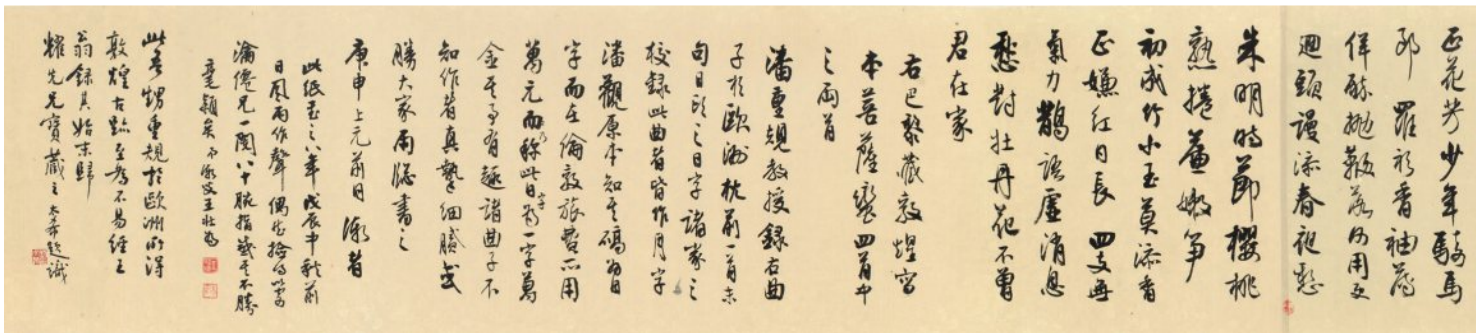 正花芳少年騎馬
郎 羅衫香袖薄
佯醉拋鞭落何用更
迴頭謾添春夜愁
朱明時節櫻桃
熟捲簾嫩笋
初成竹小玉莫添香
正嫌紅日長 四支無
氣力鵲語虛消息
愁對牡丹花不曾
君在家
右巴黎藏敦煌寫
本菩薩蠻四首中
之兩首
潘重規教授錄右曲
子於歐洲枕前一首末
句日頭之日字諸家之
校錄此曲者皆作月字
潘觀原本知其確為日
字而在倫敦旅費所用
萬元乃稱此日字為一字萬
金至為有趣諸曲子不
知作者真摯細膩或
勝大家雨窗書之
庚申上元前日 漸者
此紙書之八年戊辰中秋前
日風雨作聲 偶出撿得以寄
僊兄一閱八十腕指 不勝
毫穎矣 漸父王壯為
此吾甥重規於歐洲所得
敦煌古豔至為不易經王
翁錄其始末歸
耀先兄寶藏之 太希題識